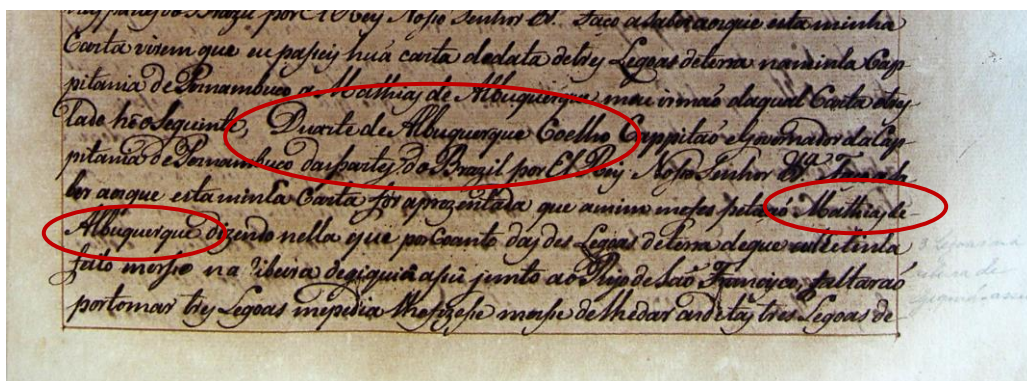 partes do Brazil por El Rey Nosso Senhor &.ª Faço a saber aosque esta minha
Carta virem que eu passey huã carta de data de trey Legoas de terra na minha Cap-
pitania de Pernambuco a Mathias de Albuquerque meu irmaõ da qual Carta o trey-
lado hé o Seguinte, Duarte de Albuquerque Coelho Cappitaõ e Governador da Cap-
pitania de Pernambuco das partes do Brazil por El Rey Nosso Senhor &.ª Faço sa-
ber aosque esta minha Carta for aprezentada que a mim me fes petiçaõ Mathias de
Albuquerque dizendo nella que por Coanto das des Legoas de terra de que eu lhe tinha
feito merse na ribeira de siquiá junto ao Rijo de Saõ Francisco, faltaraõ
por tomar trey Legoas me pedia lhe fizese merse de lhe dar as ditas tres Legoas de
3 Legoas na